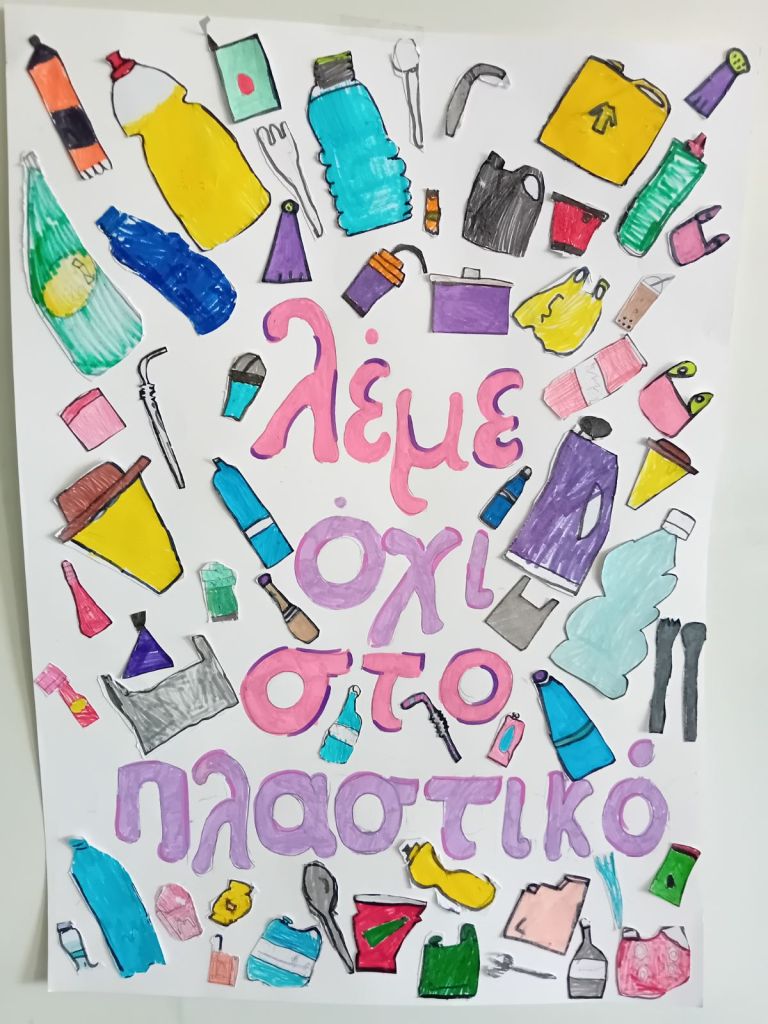 λέμε
όχι
στο
πλαστικό